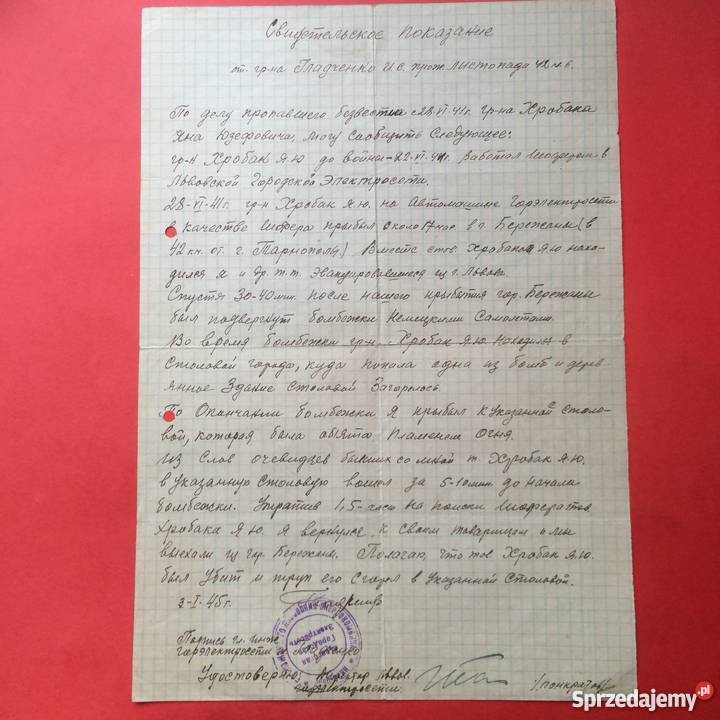 Свидетельское показание
от гр-на Гладченко И.С. прож. Листопада 42 м. 6.
По делу пропавшего безвести с 28-VI-41г. гр-на Хробака
Яна Юзефовича, могу сообщить следующее:
гр-н Хробак Я.Ю. до войны-22-VI-41г. работал шофером в
Львовской Городской Электросети.
28-VI-41г. гр-н Хробак Я.Ю. на автомашине Горэлектросети
в качестве шофера прибыл около 17 час. в г. Бережаны (в
42 км. от г. Тарнополя) Вместе с тов. Хробаком Я.Ю. нахо-
дился я и др. т.т. эвакуировавшиеся из г. Львова.
Спустя 30-40 мин. после нашего прибытия гор. Бережаны
был подвергнут бомбежки Немецкими Самолетами.
Во время бомбежки гр-н Хробак Я.Ю. находился в
Столовой города, куда попала одна из бомб и дерев-
янное здание столовой загорелось.
По окончании бомбежки я прибыл к указанной столо-
вой, которая была объята пламенем огня.
Из слов очевидцев бывших со мной т. Хробак Я.Ю.
в указанную столовую вошел за 5-10 мин. до начала
бомбежки. Утратив 1,5- часа на поиски
Хробака Я.Ю. я вернулся к своим товарищам и мы
выехали из гор. Бережаны. Полагаю, что тов Хробак Я.Ю.
был убит и труп его сгорел в указанной столовой.
2-I-45г.
Подпись гл. инж.
горэлектросети
Удостоверяю: Директор Львов.
горэлектросети.
/Понкратов/
Sprzedajemy.pl